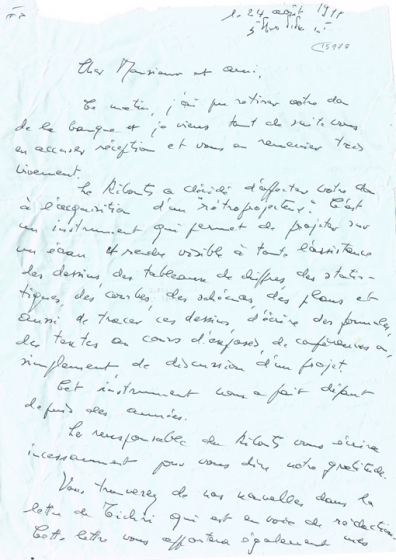 24 août
Cher Monsieur et ami,
Ce matin, j'ai pu retirer votre don
de la banque et je viens tout de suite vous
en accuser réception et vous en remercier très
vivement.
Le a décidé d'affecter votre don
à l'acquisition d'un "rétroprojecteur". C'est
un instrument qui permet de projeter sur
un écran et rendre visible à toute l'assistance
des dessins, des tableaux de chiffres, des statis-
tiques, des courbes, des schémas, des plans et
aussi de tracer ces dessins, d'écrire des formules,
des textes en cours d'exposés, de conférences ou
simplement de discussion d'un projet.
Cet instrument nous a fait défaut
depuis des années.
Le responsable du vous écrira
incessamment pour vous dire notre gratitude.
Vous trouverez de nos nouvelles dans la
lettre de qui est en voie de rédaction.
Cette lettre vous apportera également mes